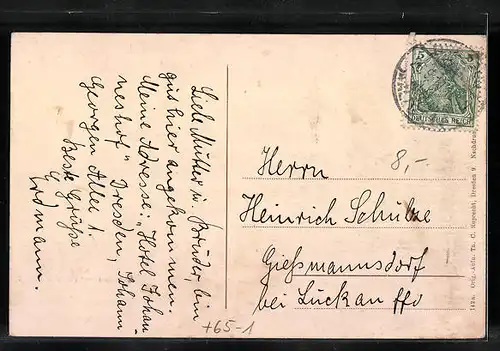 Liebe Mutter u. Brüder, bin
gut hier angekommen.
Meine Adresse: "Hotel Johan
neshof" Dresden, Johann
Georgen Allee 1.
Beste Grüße
Erdmann.
5 5
DEUTSCHES REICH
8,-
Herrn
Heinrich Schulze
Gießmannsdorf
bei Luckau
+65-1
Orig.-Aufn. Th. C. Ruprecht, Dresden 9 Nachdruck